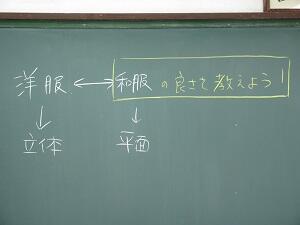 洋服 ↔ 和服の良さを教えよう!
↓ ↓
立体 平面